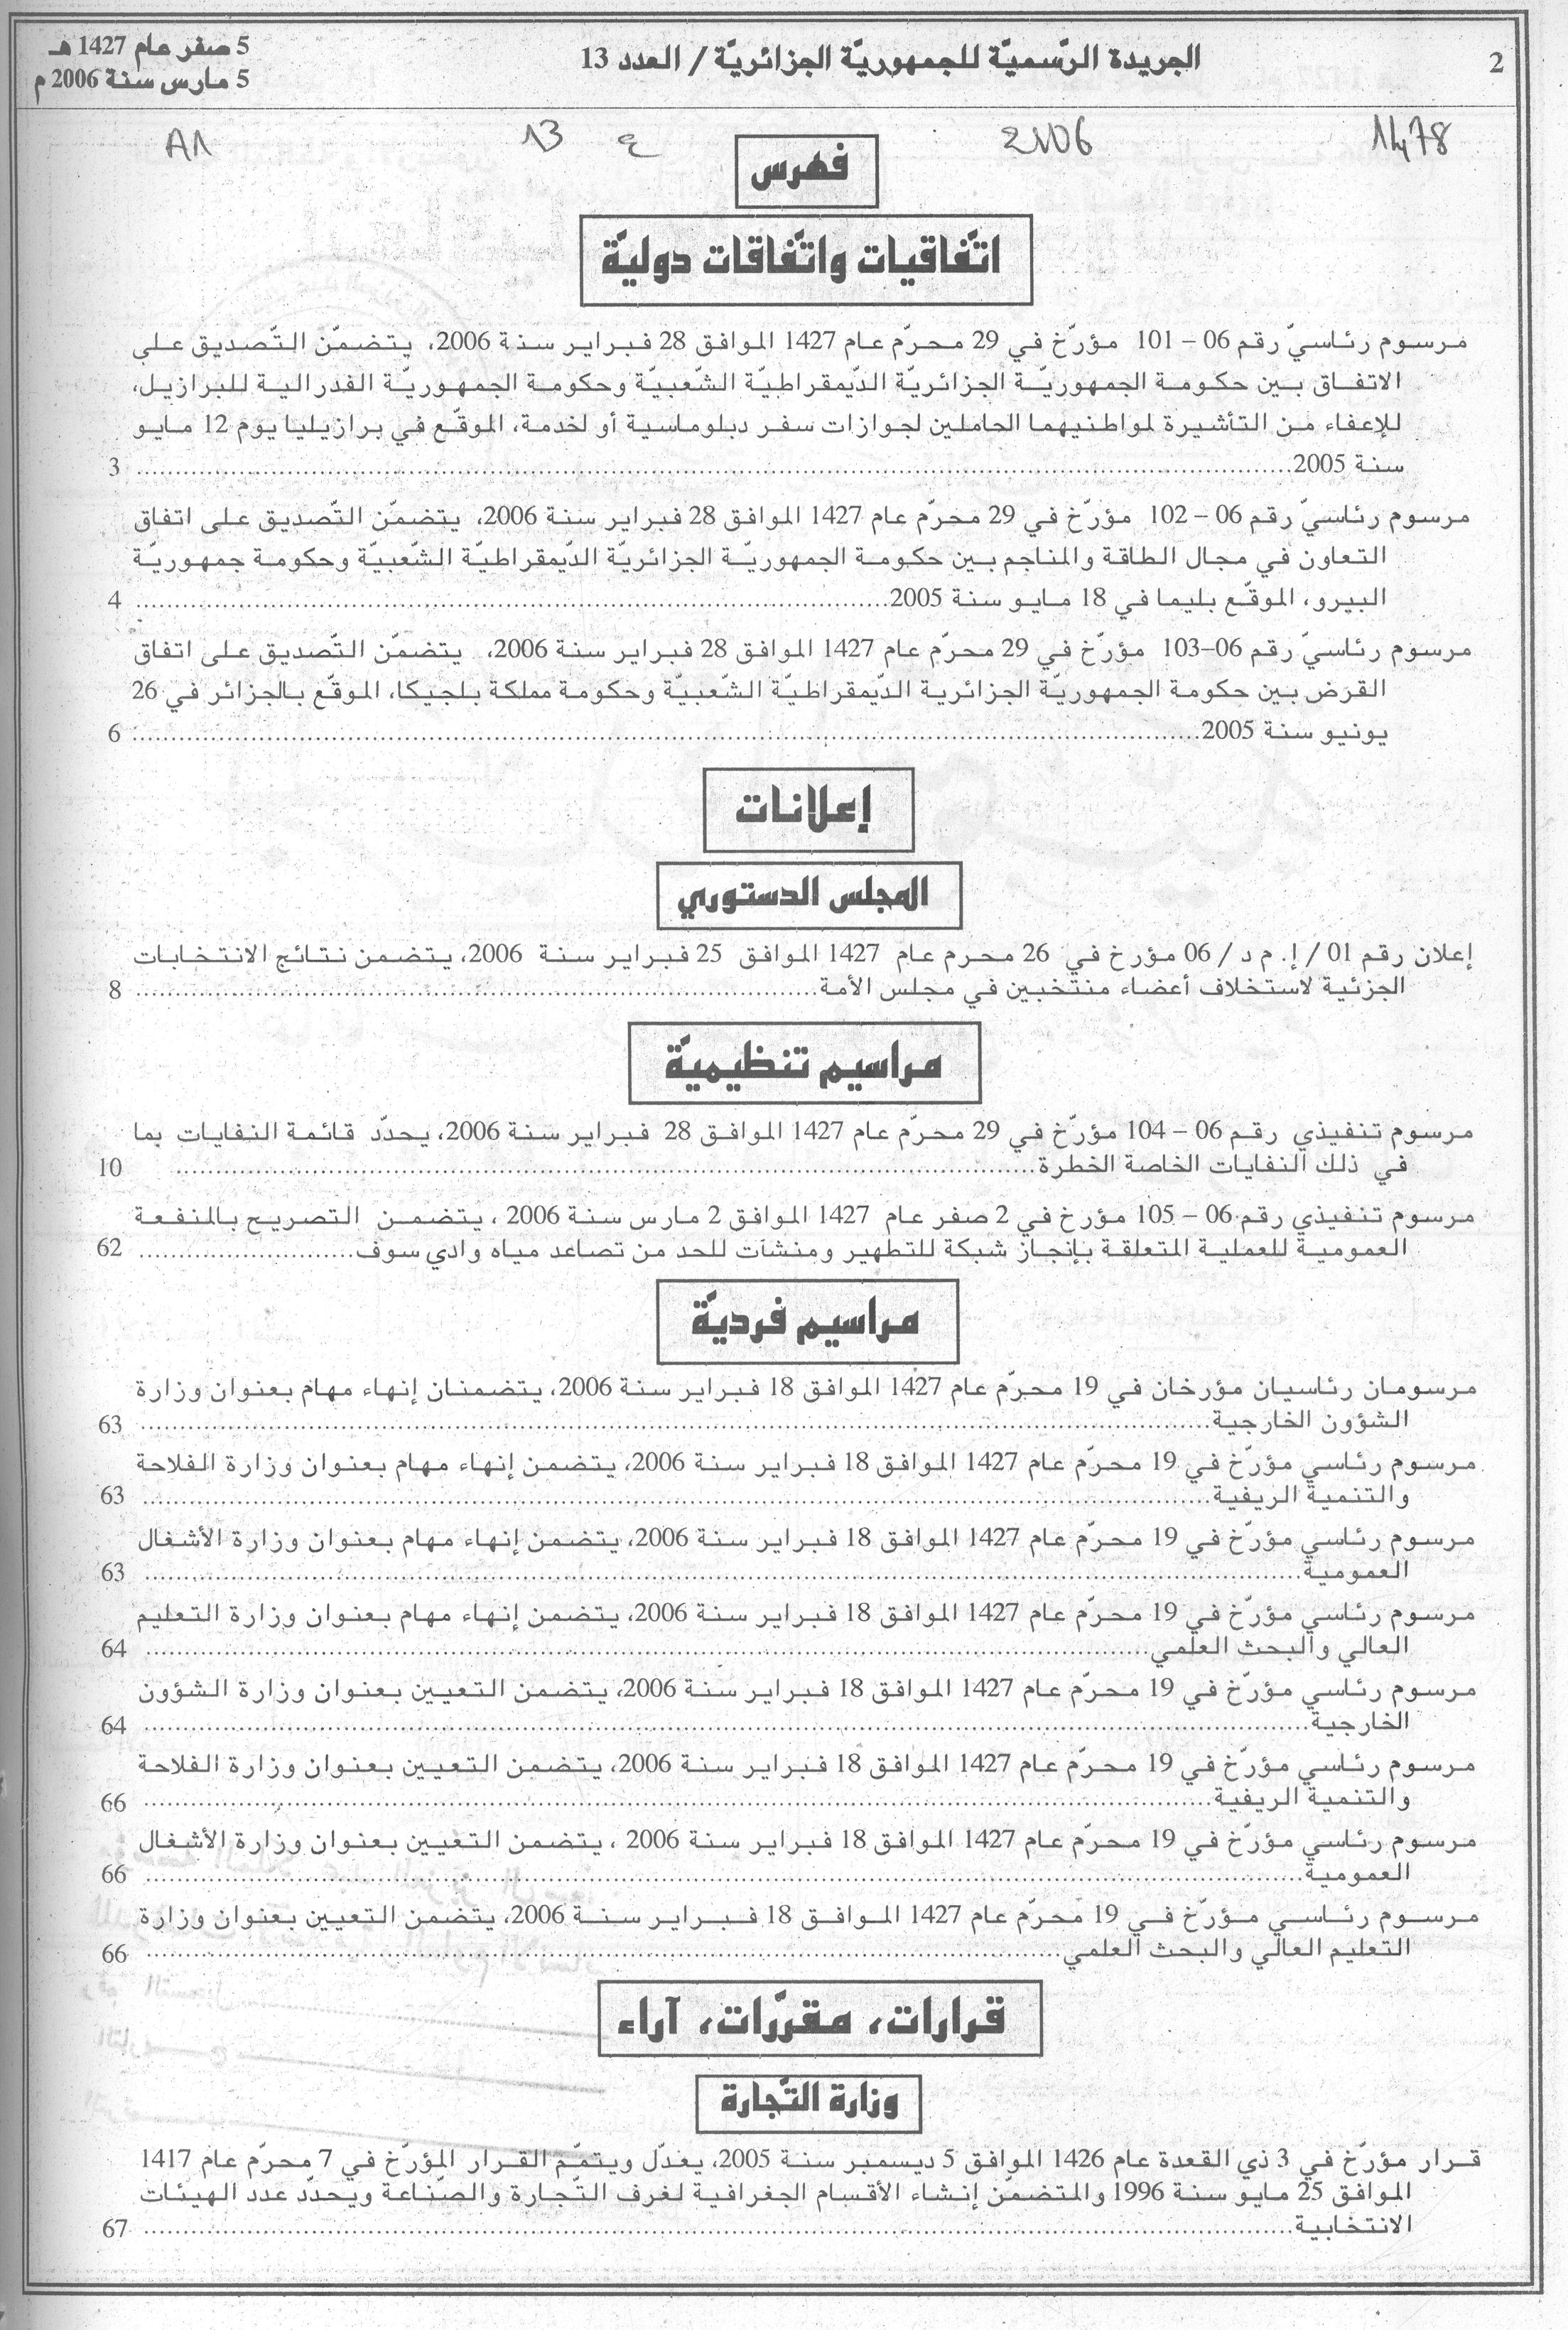 2
الجريدة الرّسميّة للجمهوريّة الجزائريّة / العدد 13
5 صفر عام 1427 هـ
5 مارس سنة 2006 م
1478
2006
ع 13
A1
فهرس
اتّفاقيات واتّفاقات دوليّة
مرسوم رئاسيّ رقم 06 – 101 مؤرّخ في 29 محرّم عام 1427 الموافق 28 فبراير سنة 2006، يتضمّن التّصديق على
الاتفاق بين حكومة الجمهوريّة الجزائريّة الدّيمقراطيّة الشّعبيّة وحكومة الجمهوريّة الفدرالية للبرازيل،
للإعفاء من التأشيرة لمواطنيهما الحاملين لجوازات سفر دبلوماسية أو لخدمة، الموقّع في برازيليا يوم 12 مايو
سنة 2005.................... 3
مرسوم رئاسيّ رقم 06 – 102 مؤرّخ في 29 محرّم عام 1427 الموافق 28 فبراير سنة 2006، يتضمّن التّصديق على اتفاق
التعاون في مجال الطاقة والمناجم بين حكومة الجمهوريّة الجزائريّة الدّيمقراطيّة الشّعبيّة وحكومة جمهوريّة
البيرو، الموقّع بليما في 18 مايو سنة 2005.................... 4
مرسوم رئاسيّ رقم 06–103 مؤرّخ في 29 محرّم عام 1427 الموافق 28 فبراير سنة 2006، يتضمّن التّصديق على اتفاق
القرض بين حكومة الجمهوريّة الجزائرية الدّيمقراطيّة الشّعبيّة وحكومة مملكة بلجيكا، الموقّع بالجزائر في 26
يونيو سنة 2005.................... 6
إعلانات
المجلس الدستوري
إعلان رقم 01 / إ. م د / 06 مؤرخ في 26 محرم عام 1427 الموافق 25 فبراير سنة 2006، يتضمن نتائج الانتخابات
الجزئية لاستخلاف أعضاء منتخبين في مجلس الأمة.................... 8
مراسيم تنظيميّة
مرسوم تنفيذي رقم 06 – 104 مؤرّخ في 29 محرّم عام 1427 الموافق 28 فبراير سنة 2006، يحدّد قائمة النفايات بما
في ذلك النفايات الخاصة الخطرة.................... 10
مرسوم تنفيذي رقم 06 – 105 مؤرخ في 2 صفر عام 1427 الموافق 2 مارس سنة 2006 ، يتضمن التصريح بالمنفعة
العمومية للعملية المتعلقة بإنجاز شبكة للتطهير ومنشآت للحد من تصاعد مياه وادي سوف.................... 62
مراسيم فرديّة
مرسومان رئاسيان مؤرخان في 19 محرّم عام 1427 الموافق 18 فبراير سنة 2006، يتضمنان إنهاء مهام بعنوان وزارة
الشؤون الخارجية.................... 63
مرسوم رئاسي مؤرّخ في 19 محرّم عام 1427 الموافق 18 فبراير سنة 2006، يتضمن إنهاء مهام بعنوان وزارة الفلاحة
والتنمية الريفية.................... 63
مرسوم رئاسي مؤرّخ في 19 محرّم عام 1427 الموافق 18 فبراير سنة 2006، يتضمن إنهاء مهام بعنوان وزارة الأشغال
العمومية.................... 63
مرسوم رئاسي مؤرّخ في 19 محرّم عام 1427 الموافق 18 فبراير سنة 2006، يتضمن إنهاء مهام بعنوان وزارة التعليم
العالي والبحث العلمي.................... 64
مرسوم رئاسي مؤرّخ في 19 محرّم عام 1427 الموافق 18 فبراير سنة 2006، يتضمن التعيين بعنوان وزارة الشؤون
الخارجية.................... 64
مرسوم رئاسي مؤرّخ في 19 محرّم عام 1427 الموافق 18 فبراير سنة 2006، يتضمن التعيين بعنوان وزارة الفلاحة
والتنمية الريفية.................... 66
مرسوم رئاسي مؤرّخ في 19 محرّم عام 1427 الموافق 18 فبراير سنة 2006 ، يتضمن التعيين بعنوان وزارة الأشغال
العمومية.................... 66
مرسوم رئاسي مؤرّخ في 19 محرّم عام 1427 الموافق 18 فبراير سنة 2006، يتضمن التعيين بعنوان وزارة
التعليم العالي والبحث العلمي.................... 66
قرارات، مقرّرات، آراء
وزارة التّجارة
قرار مؤرّخ في 3 ذي القعدة عام 1426 الموافق 5 ديسمبر سنة 2005، يعدّل ويتمّم القرار المؤرّخ في 7 محرّم عام 1417
الموافق 25 مايو سنة 1996 والمتضمّن إنشاء الأقسام الجغرافية لغرف التّجارة والصّناعة ويحدّد عدد الهيئات
الانتخابية.................... 67